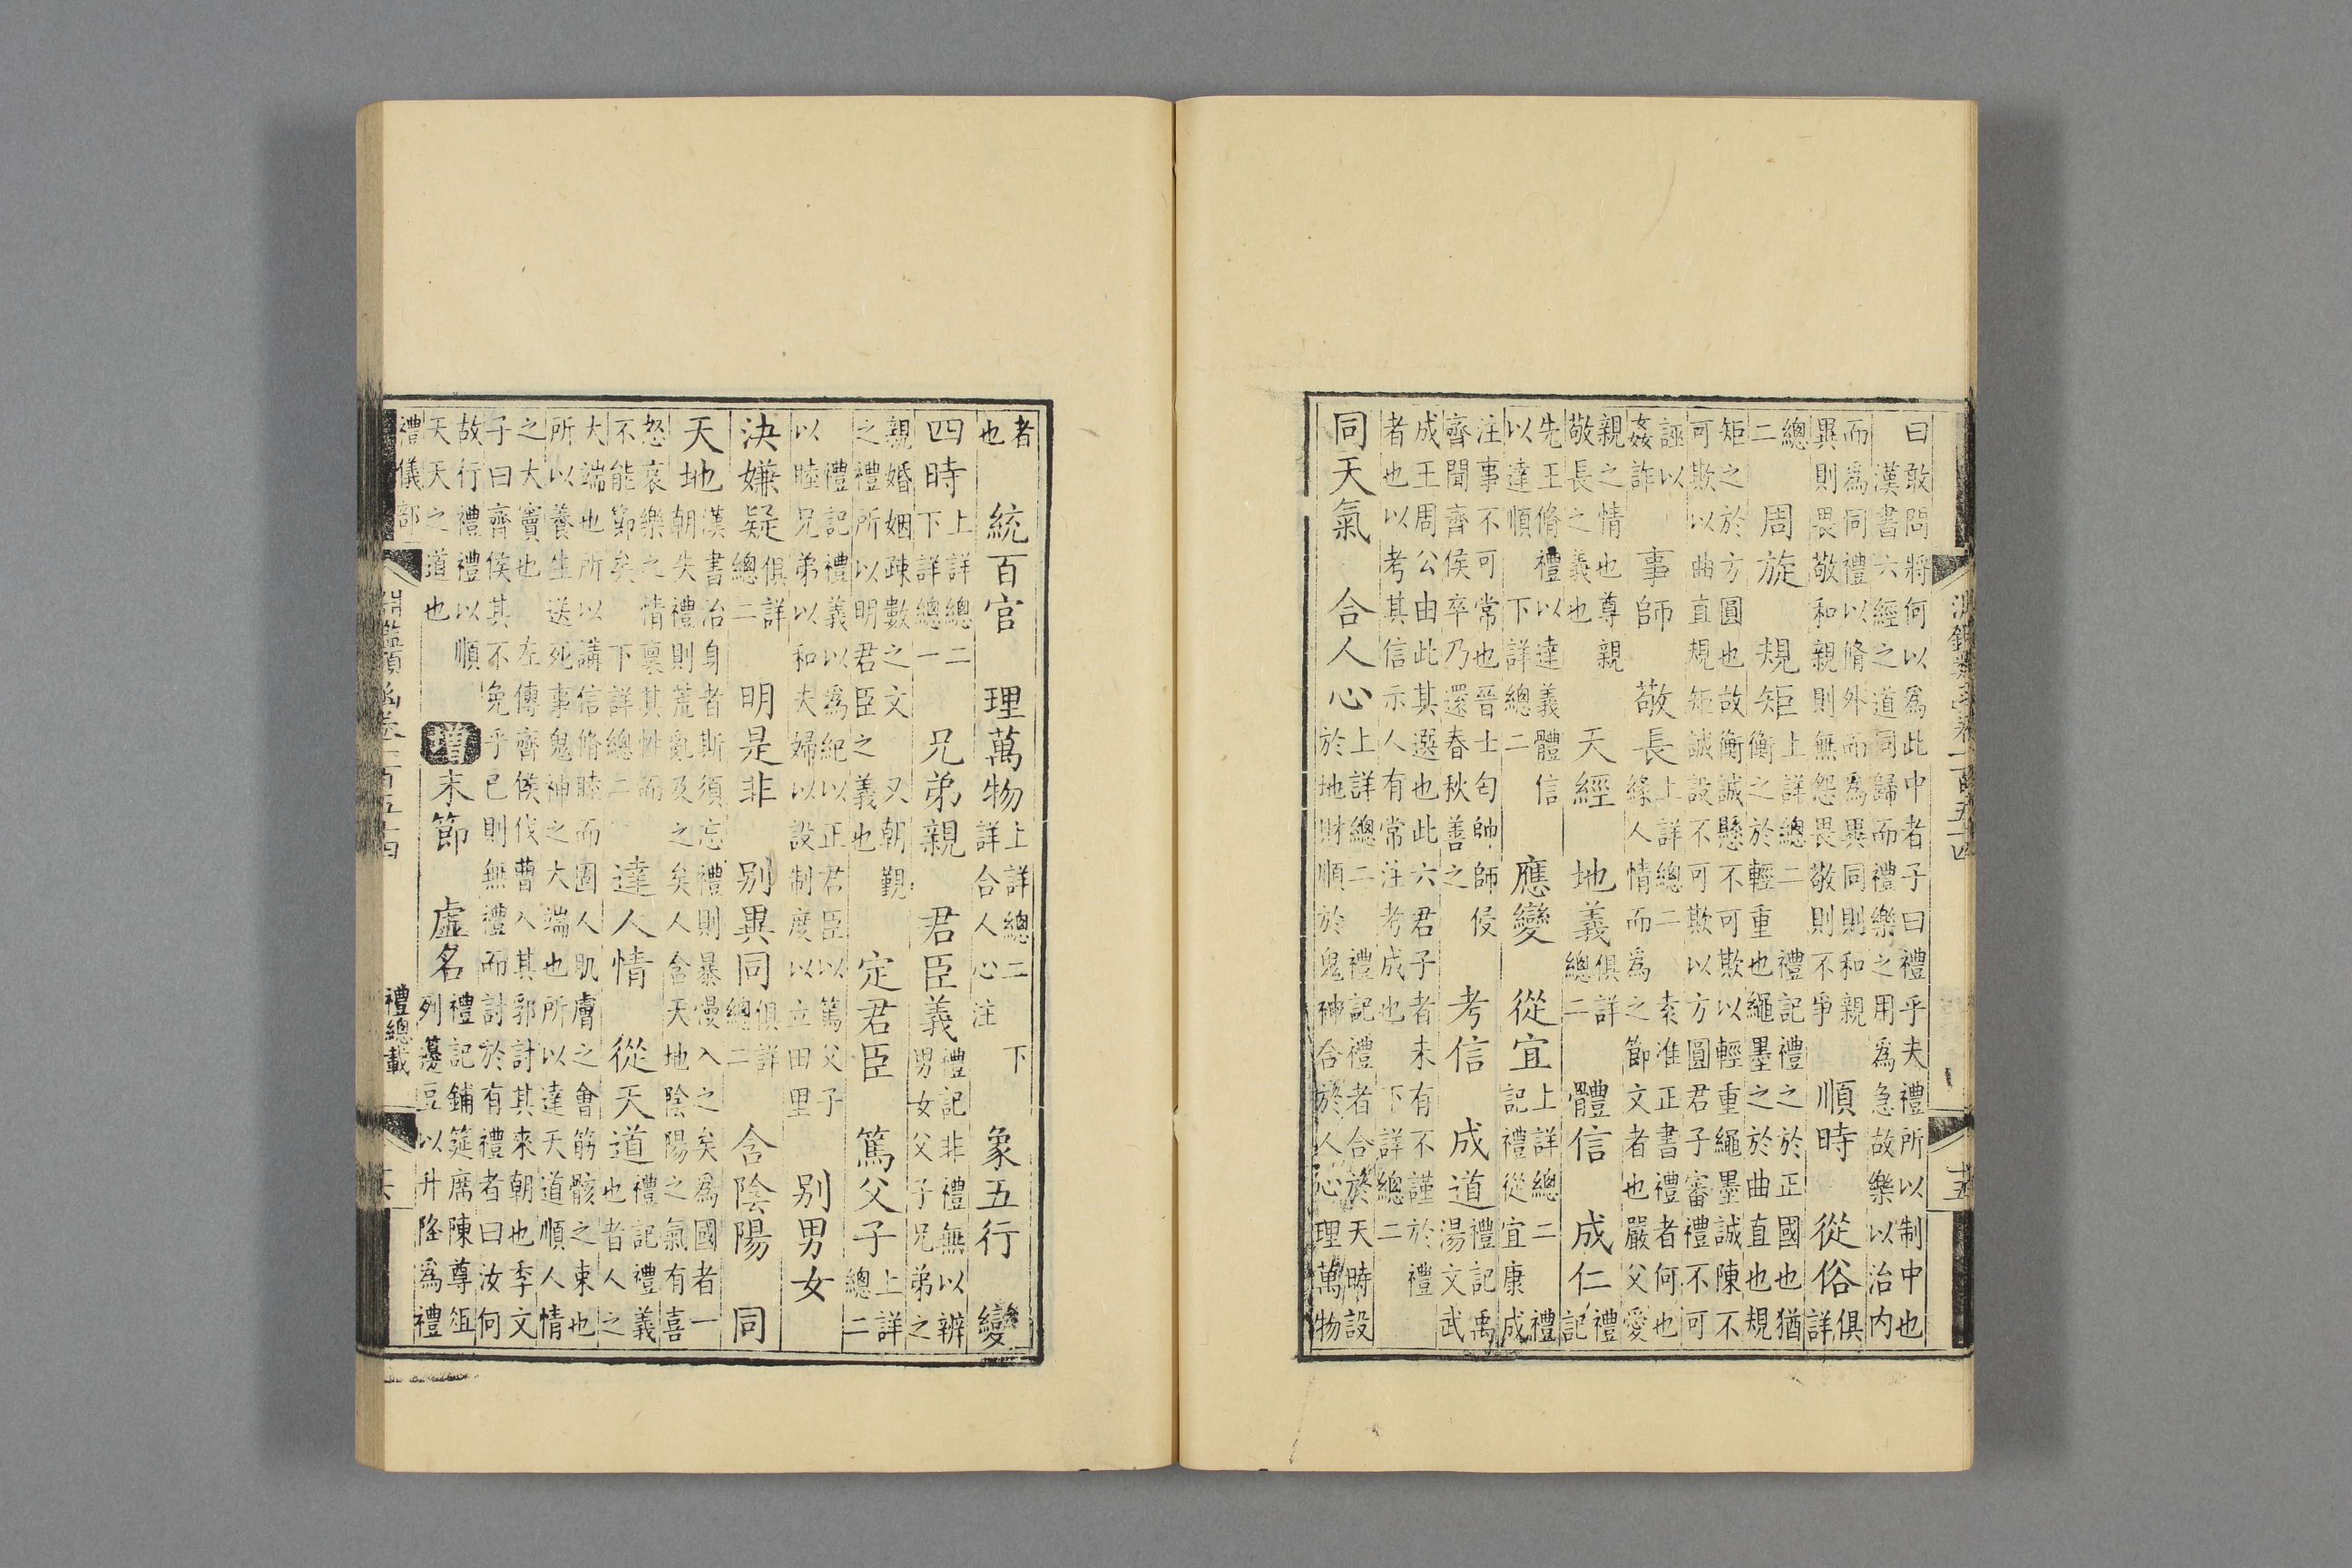 淵鑑類函卷一百五十四 十五
曰敢問將何以爲此中者子曰禮乎夫禮所以制中也
漢書六經之道同歸而禮樂之用爲急故樂以治内
而爲同禮以脩外而爲異同則和親
異則畏敬和親則無怨畏敬則不爭
順時 從俗 俱詳
總二 周旋 規矩 上詳總二 禮記禮之於正國也猶
衡之於輕重也繩墨之於曲直也規
矩之於方圓也故衡誠懸不可欺以輕重繩墨誠陳不
可欺以曲直規矩誠設不可欺以方圓君子審禮不可
誣以姦詐 事師 敬長 上詳總二 准正書禮者何也
緣人情而爲之節文者也嚴父愛
親之情也尊親
敬長之義也
天經 地義 俱詳總二 體信 成仁 禮記
先王脩禮以達義體信
以達順 下詳總二
應變 從宜 上詳總二 禮
記禮從宜康成
注事不可常也晉士匄帥師侵
齊聞齊侯卒乃還春秋善之
考信 成道 禮記禹湯文武
成王周公由此其選也此六君子者未有不謹於禮
者也以考其信示人有常注考成也 下詳總二
同天氣 合人心 上詳總二 禮記禮者合於天時設
於地財順於鬼神合於人心理萬物
者也 統百官 理萬物 上詳總二 下
詳合人心注
象五行 變
四時 上詳總二
下詳總一
兄弟親 君臣義 禮記非禮無以辨
男女父子兄弟之
親婚姻疎數之文 又朝覲
之禮所以明君臣之義也
定君臣 篤父子 上詳總二
禮記禮義以爲紀以正君臣以篤父子
以睦兄弟以和夫婦以設制度以立田里
別男女
決嫌疑 俱詳總二 明是非 別異同 俱詳總二 含陰陽 同
天地 漢書治身者斯須忘禮則暴慢入之矣爲國者一
朝失禮則荒亂及之矣人含天地陰陽之氣有喜
怒哀樂之情稟其性而
不能節矣 下詳總二
達人情 從天道 禮記禮義
也者人之
大端也所以講信脩睦而固人肌膚之會筋骸之束也
所以養生送死事鬼神之大端也所以達天道順人情
之大竇也 左傳齊侯伐曹入其郛討其來朝也季文
子曰齊侯其不免乎已則無禮而討於有禮者曰汝何
故行禮禮以順
天天之道也
增 末節 虛名 禮記鋪筵席陳尊俎
列籩豆以升降爲禮
禮儀部 淵鑑類函卷一百五十四 禮總載